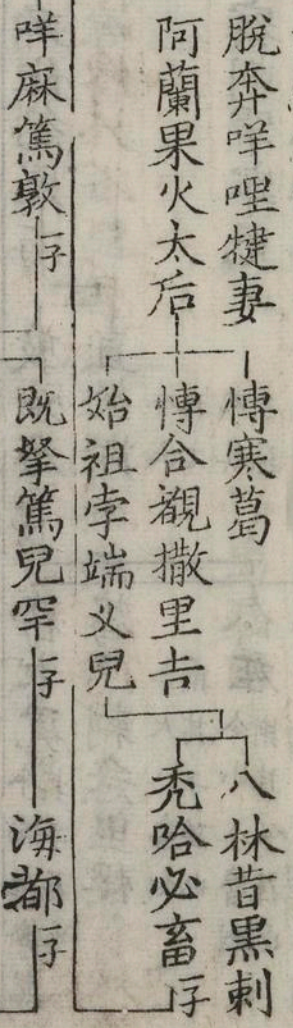 脫奔咩哩犍妻
阿蘭果火太后
愽寒葛
愽合覩撒里吉
始祖孛端义兒
八林昔黒剌
禿哈必畜 一子
咩麻篤敦 一子
既拏篤兒罕 一子
海都 一子